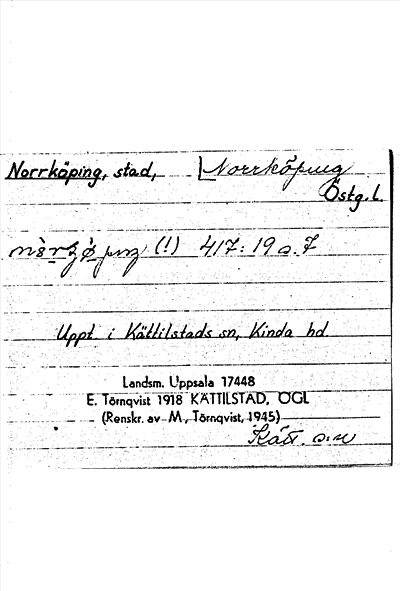 Norrköping, stad, Norrköping
Östg.l.
(!) 417: 19 a. 7
Uppt. i Kättilstads sn, Kinda hd.
Landsm. Uppsala 17448
E. Törnqvist 1918 KÄTTILSTAD, ÖGL
(Renskr. av M. Törnqvist, 1945)
Kätt. s:n